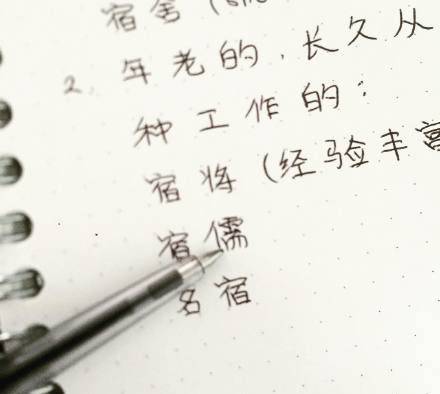 宿舍（
2. 年老的，长久从
种工作的：
宿将（经验丰富
宿儒
名宿